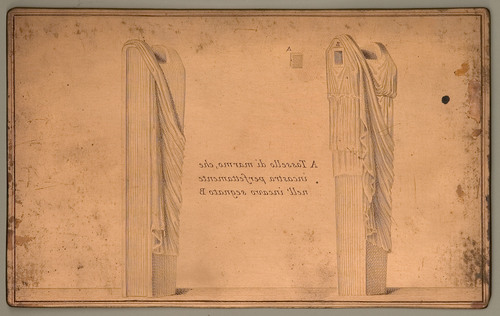 A
B
A Tassello di marmo, che
incastra perfettamente
nell'incavo segnato B